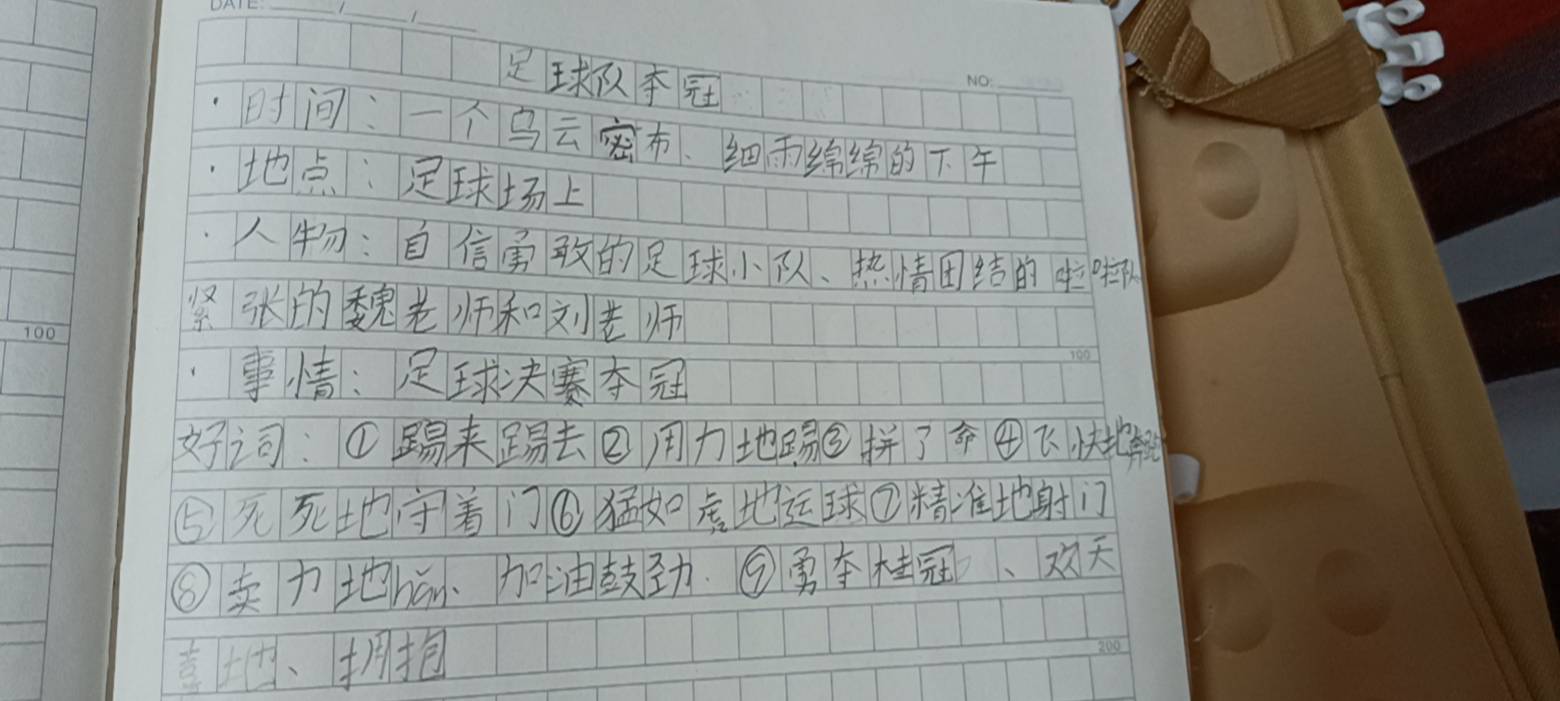 DATE: / /
NO:
足球队夺冠
·时间：一个乌云密布、细雨绵绵的下午
·地点：足球场上
·人物：自信勇敢的足球小队、热情团结的啦啦队
紧张的魏老师和刘老师
100
100
·事情：足球决赛夺冠
好词：①踢来踢去②用力地踢③拼了命④飞快地奔跑
⑤死死地守着门⑥猛如虎地运球⑦精准地射门
⑧卖力地hǎn、加油鼓劲.⑨勇夺桂冠、欢天
喜地、拥抱
200